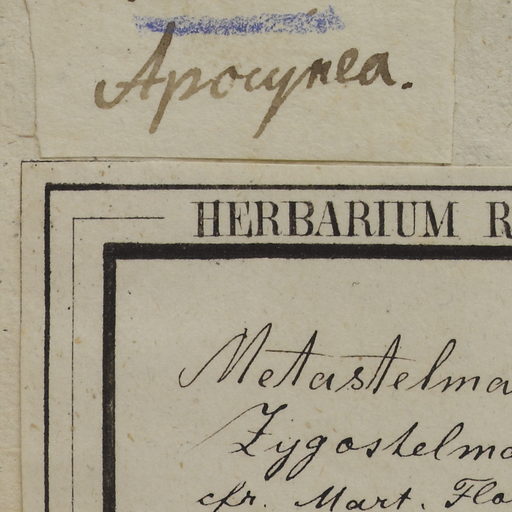 Apocynea.
HERBARIUM R
Metastelma
Zygostelma
cfr. Mart. Flo